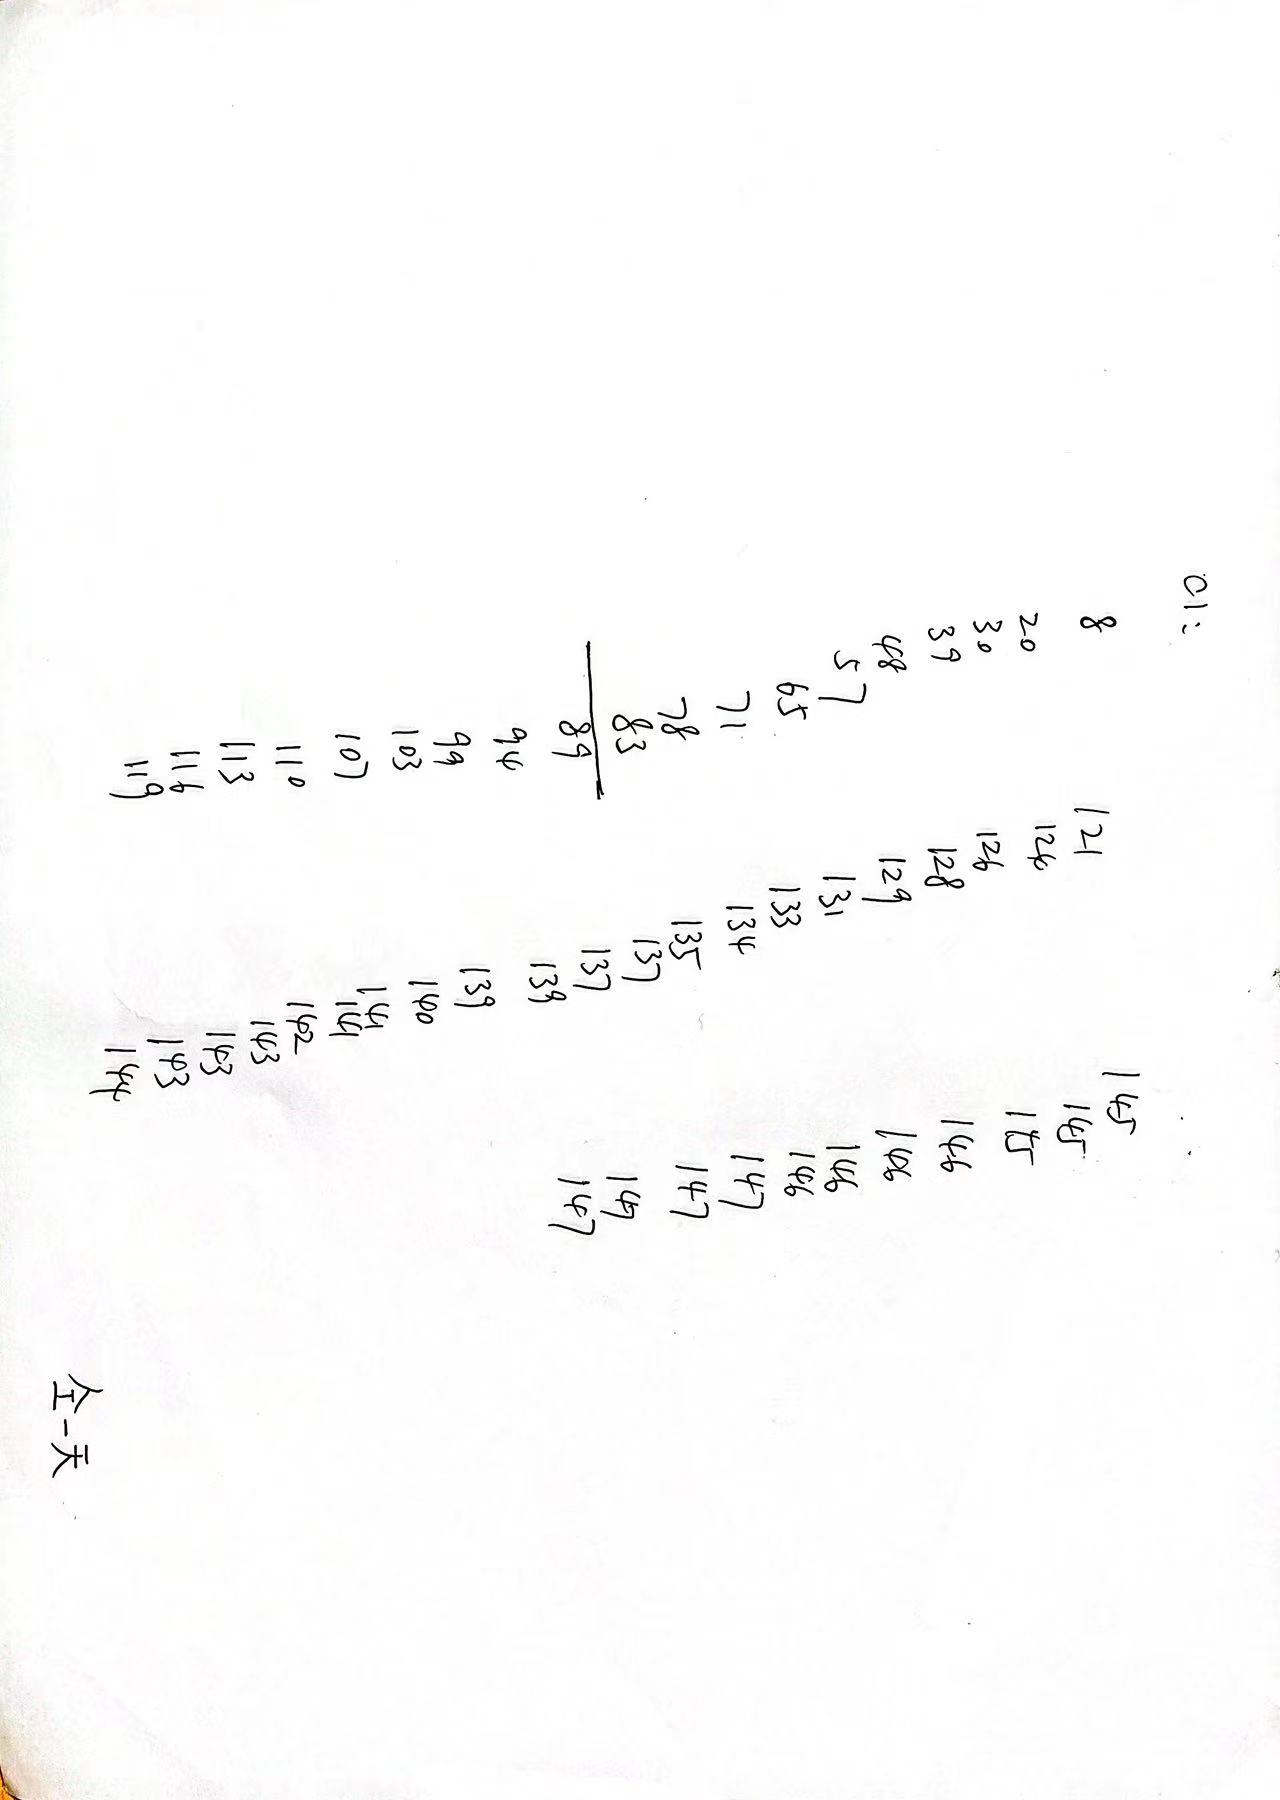 01:
8
20
30
39
48
57
65
71
78
83
89
94
99
103
107
110
113
116
119
121
124
126
128
129
131
133
134
135
137
137
139
139
140
141
141
142
143
143
143
144
145
145
145
146
146
146
146
147
147
147
147
仝一天